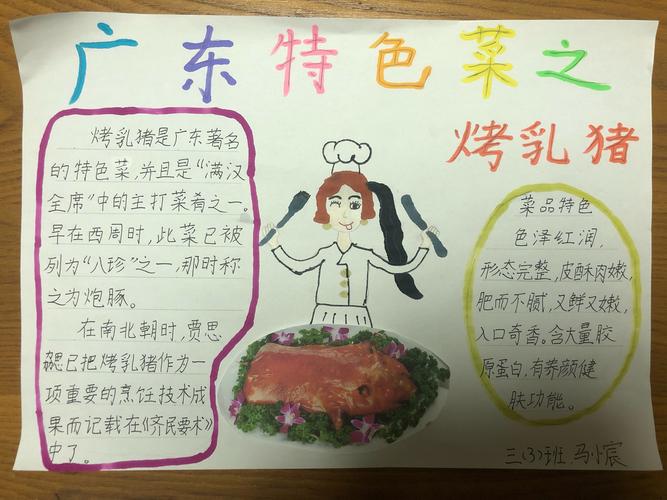 广东特色菜之
烤乳猪
烤乳猪是广东著名
的特色菜，并且是“满汉
全席”中的主打菜肴之一。
早在西周时，此菜已被
列为“八珍”之一，那时称
之为炮豚。
在南北朝时，贾思
勰已把烤乳猪作为一
项重要的烹饪技术成
果而记载在《齐民要术》
中了。
菜品特色
色泽红润，
形态完整，皮酥肉嫩，
肥而不腻，又鲜又嫩，
入口奇香。含大量胶
原蛋白，有养颜健
肤功能。
三（3）班 马小宸